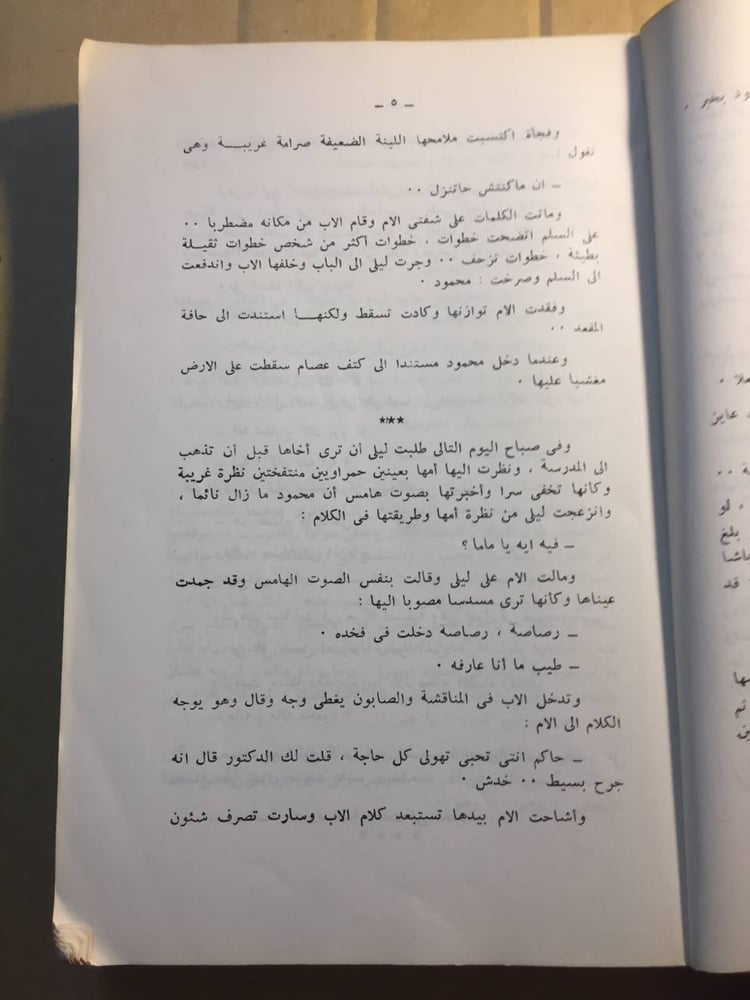 – ٥ –
وفجأة اكتسبت ملامحها اللينة الضعيفة صرامة غريبة وهى
تقول :
– ان ماكنتش حاتنزل ٠٠
وماتت الكلمات على شفتى الام وقام الاب من مكانه مضطربا ٠٠
على السلم اتضحت خطوات ، خطوات أكثر من شخص خطوات ثقيلة
بطيئة ، خطوات تزحف ٠٠ وجرت ليلى الى الباب وخلفها الاب واندفعت
الى السلم وصرخت : محمود ٠
وفقدت الام توازنها وكادت تسقط ولكنها استندت الى حافة
المقعد ٠٠
وعندما دخل محمود مستندا الى كتف عصام سقطت على الارض
مغشيا عليها ٠
***
وفى صباح اليوم التالى طلبت ليلى أن ترى أخاها قبل أن تذهب
الى المدرسة ، ونظرت اليها أمها بعينين حمراويين منتفختين نظرة غريبة
وكانها تخفى سرا وأخبرتها بصوت هامس أن محمود ما زال نائما ،
وانزعجت ليلى من نظرة أمها وطريقتها فى الكلام :
– فيه ايه يا ماما ؟
ومالت الام على ليلى وقالت بنفس الصوت الهامس وقد جمدت
عيناها وكانها ترى مسدسا مصوبا اليها :
– رصاصة ، رصاصة دخلت فى فخده ٠
– طيب ما أنا عارفه ٠
وتدخل الاب فى المناقشة والصابون يغطى وجه وقال وهو يوجه
الكلام الى الام :
– حاكم انتى تحبى تهولى كل حاجة ، قلت لك الدكتور قال انه
جرح بسيط ٠٠ خدش ٠
وأشاحت الام بيدها تستبعد كلام الاب وسارت تصرف شئون
عايز
لو
يلغ
قد
تم